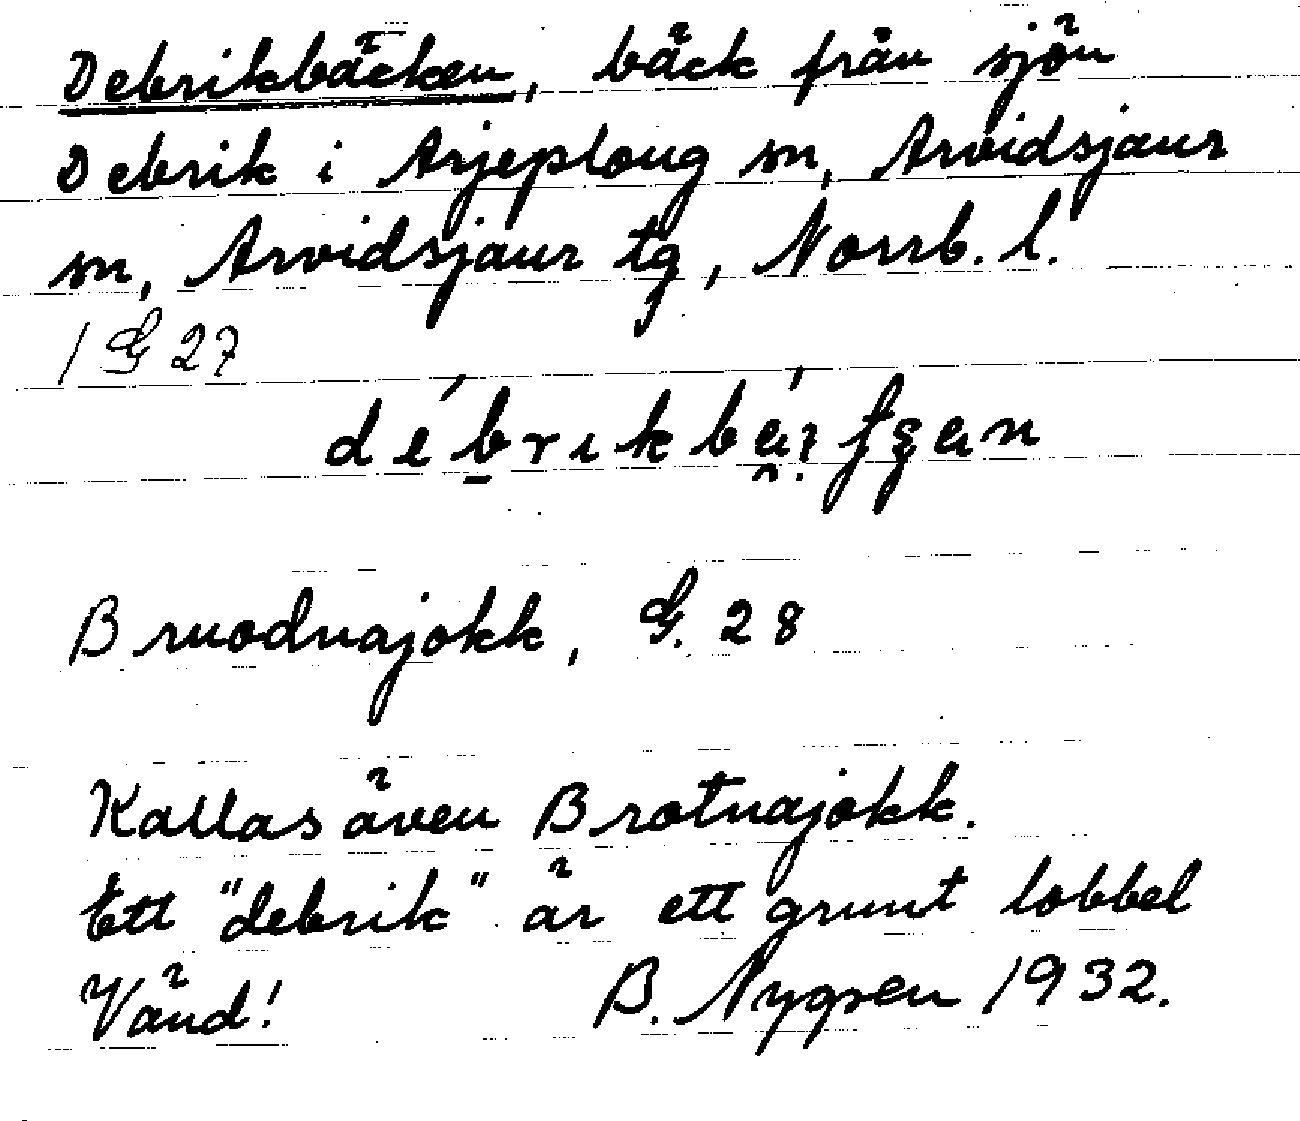 Debrikbäcken, bäck från sjön
Debrik i Arjeploug sn, Arvidsjaur
sn, Arvidsjaur tg, Norrb. l.
1 G 27
Bruodnajokk, G. 28
Kallas även Brotnajokk.
Ett "debrik" är ett grunt lobbel
Vänd! B. Nygren 1932.